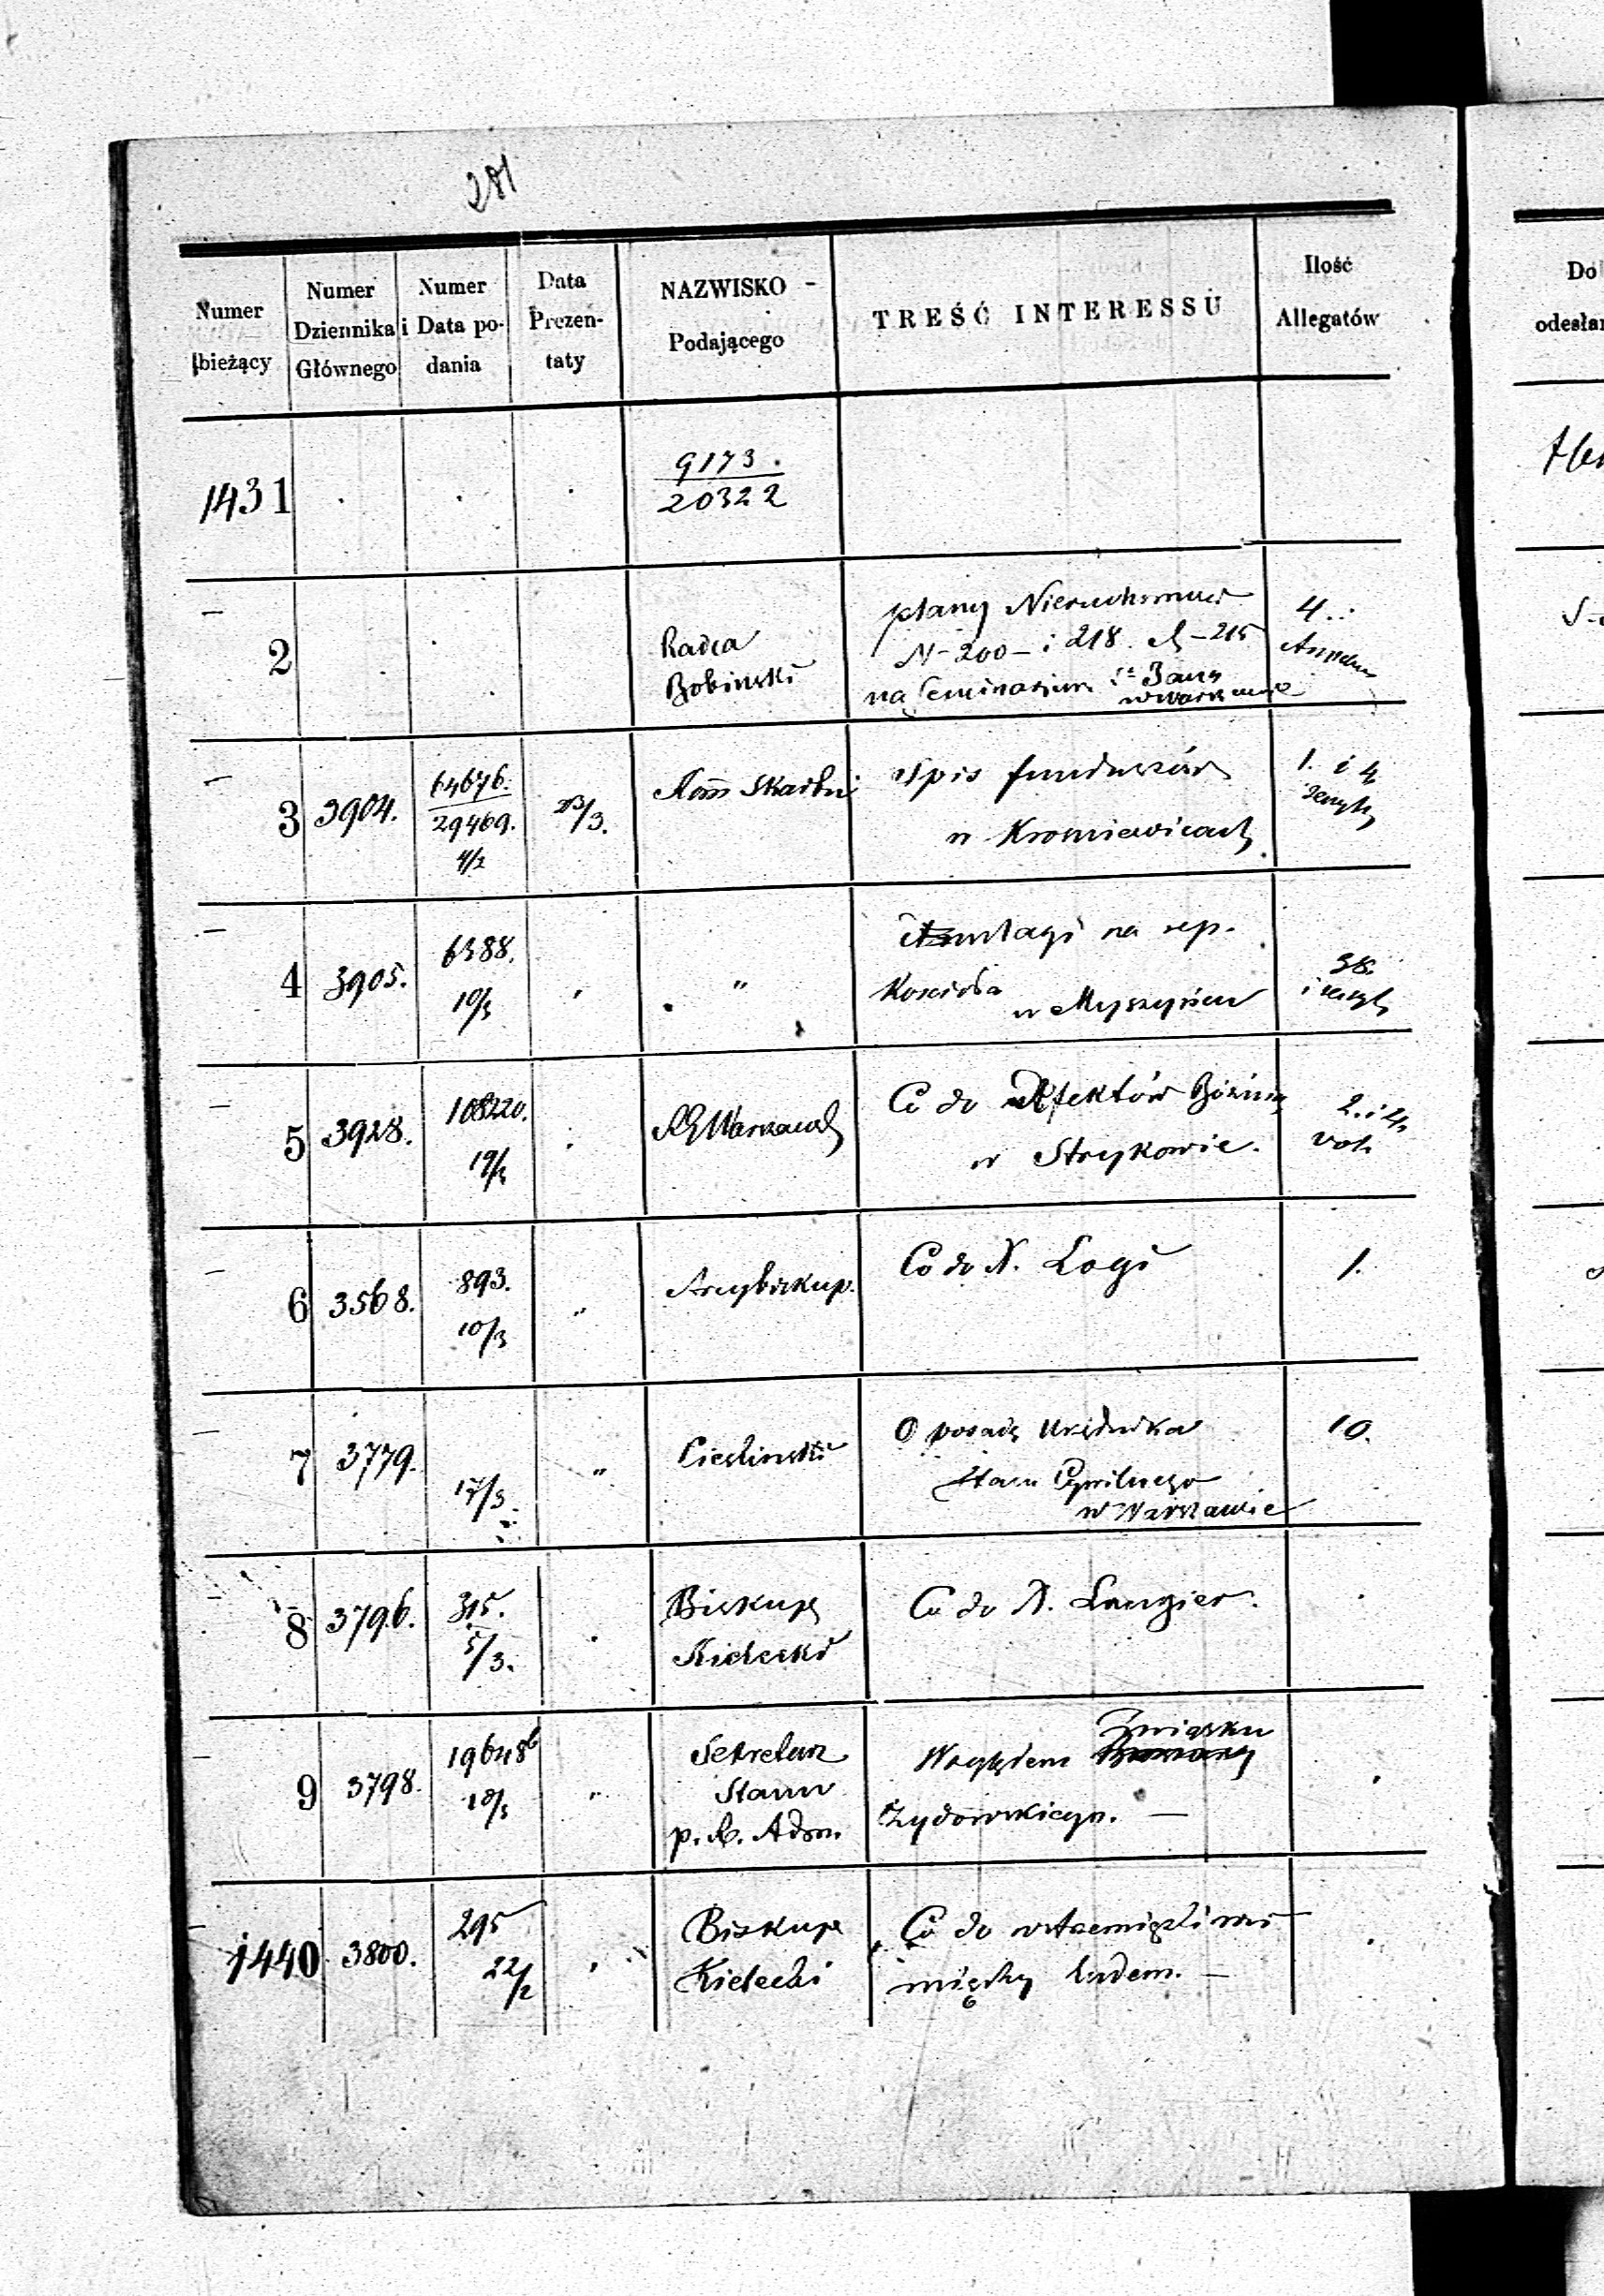 281
Numer bieżący
Numer Dziennika Głównego
Numer i Data podania
Data Prezentaty
NAZWISKO - Podającego
TREŚĆ INTERESSU
Ilość Allegatów
Do
odesłan
1431
9173.
20322
2
Radca
Bobiński
plany
N- 200 - i 218.
na Seminarium
4.
3
3904.
64676.
29469.
4/2
23/3.
Kom Skarbu
Spis funduszów
w
1. i 4
4
3905.
6388.
10/3
"
na rep.
Kościoła
w Myszyńcu
38.
5
3928.
108220.
19/3
Co do
w Strykowie.
2. i
vol.
6
3568.
893.
10/3
"
Arcybiskup.
Co do X. Logi
1.
7
3779.
17/3.
"
Cieśliński
O posadę Urzędnika
Stanu Cywilnego
w Warszawie
10.
8
3796.
315.
5/3.
Biskup
Kielecki
Co do X. Laugier.
9
3798.
18/3
"
Sekretarz
Stanu
Związku
Względem
Żydowskiego. —
1440
3800.
295
22/2
Biskup
Kielecki
Co do wstrzemięźliwości
między ludem. —